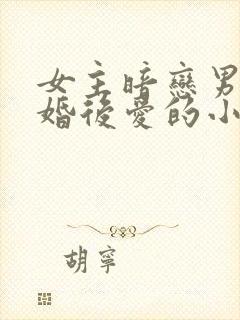 女主暗戀男
婚後愛的小
胡寧